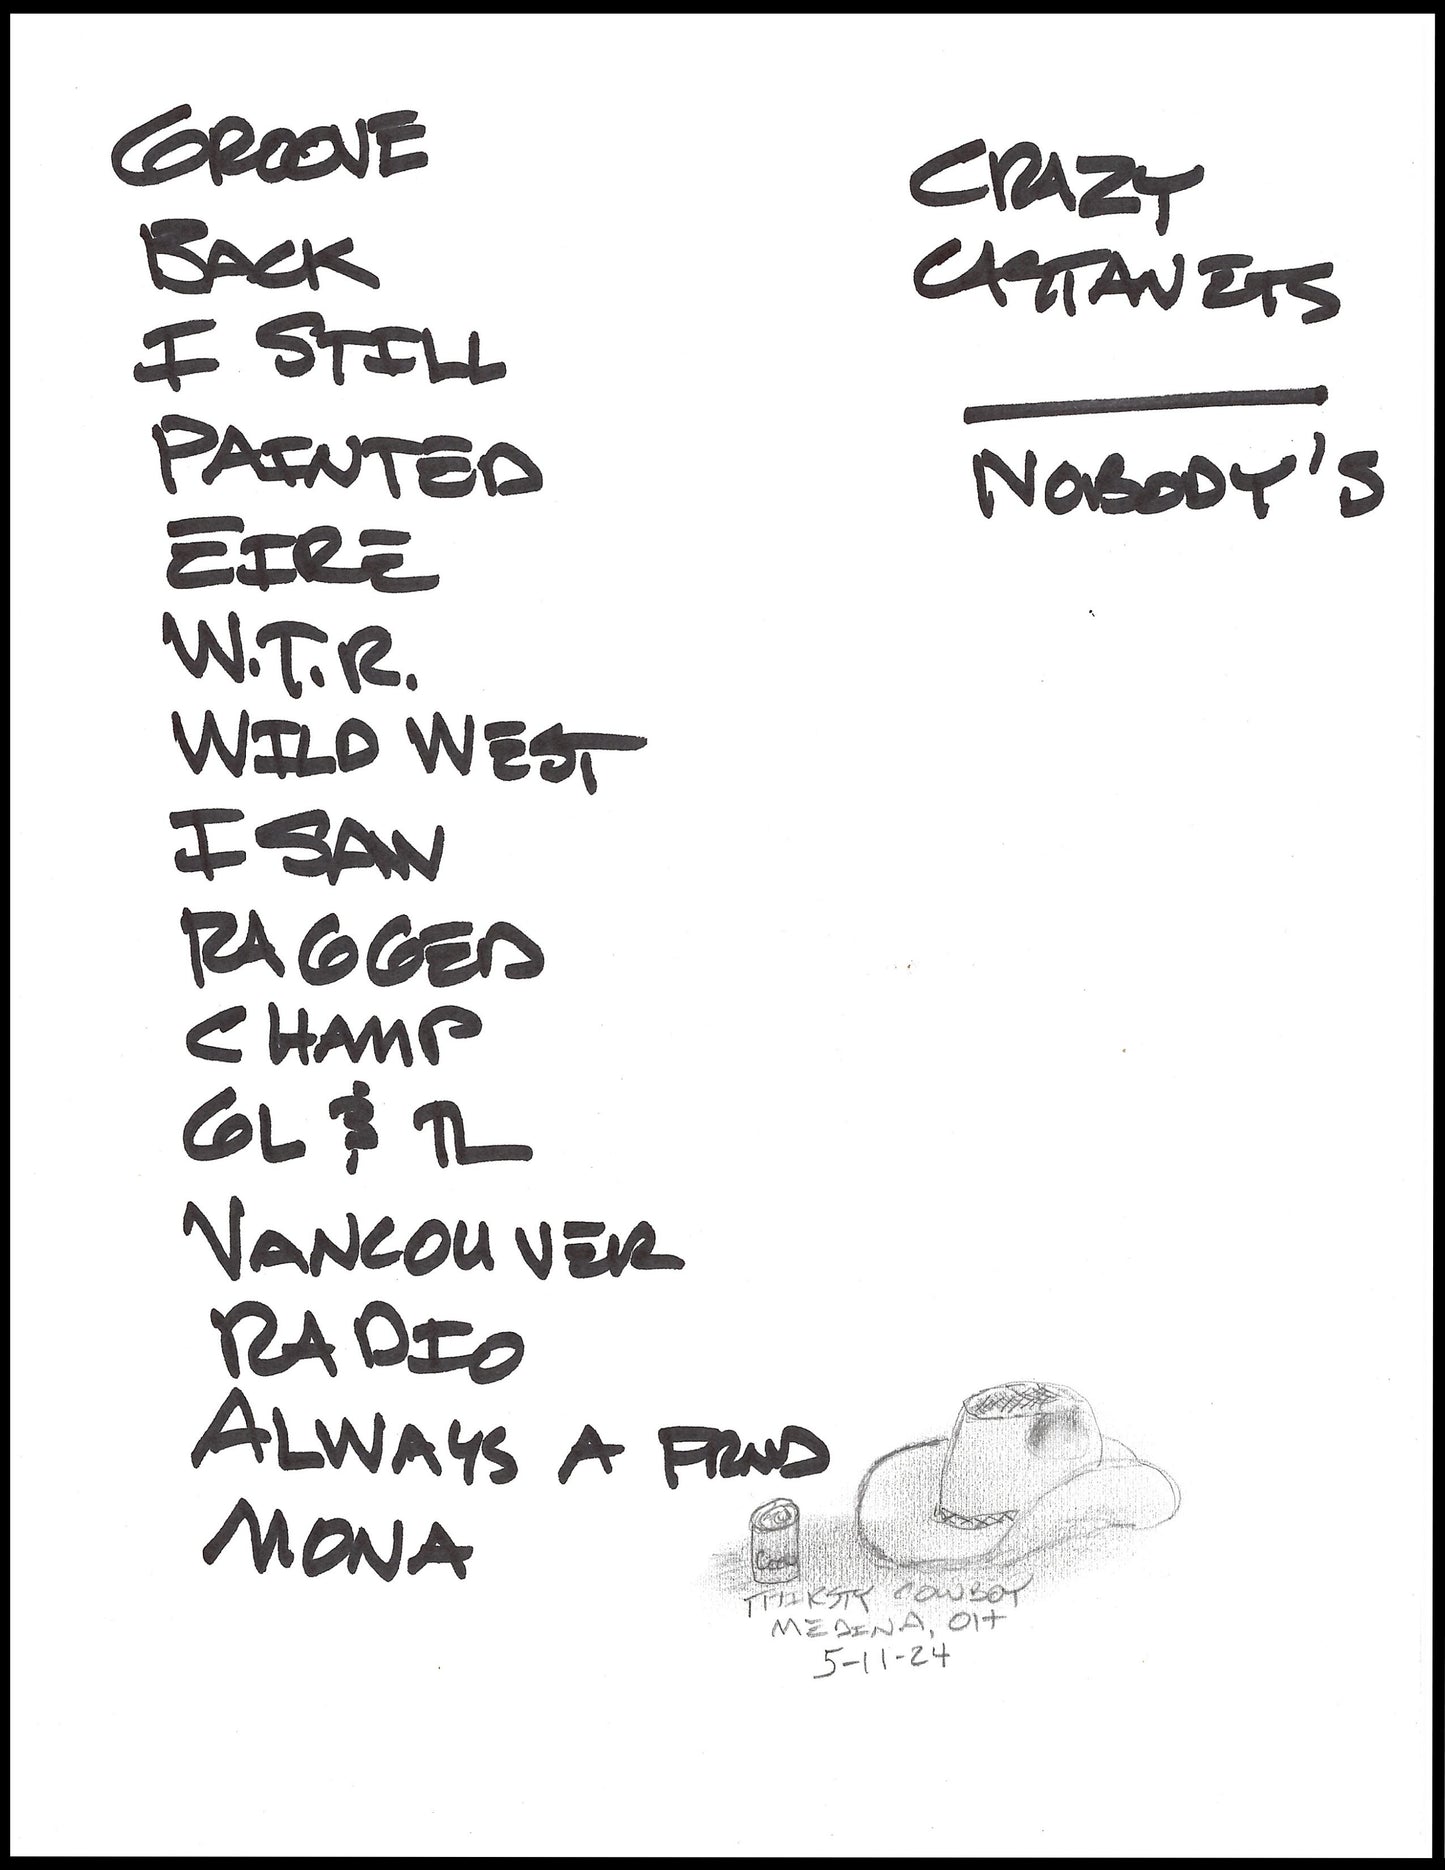 GROOVE
BACK
I STILL
PAINTED
EIRE
W.T.R.
WILD WEST
I SAW
RAGGED
CHAMP
GL & TL
VANCOUVER
RADIO
ALWAYS A FRND
MONA
CRAZY
CASTTANETS
NOBODY'S
THIRSTY COWBOY
MEDINA, OH
5-11-24